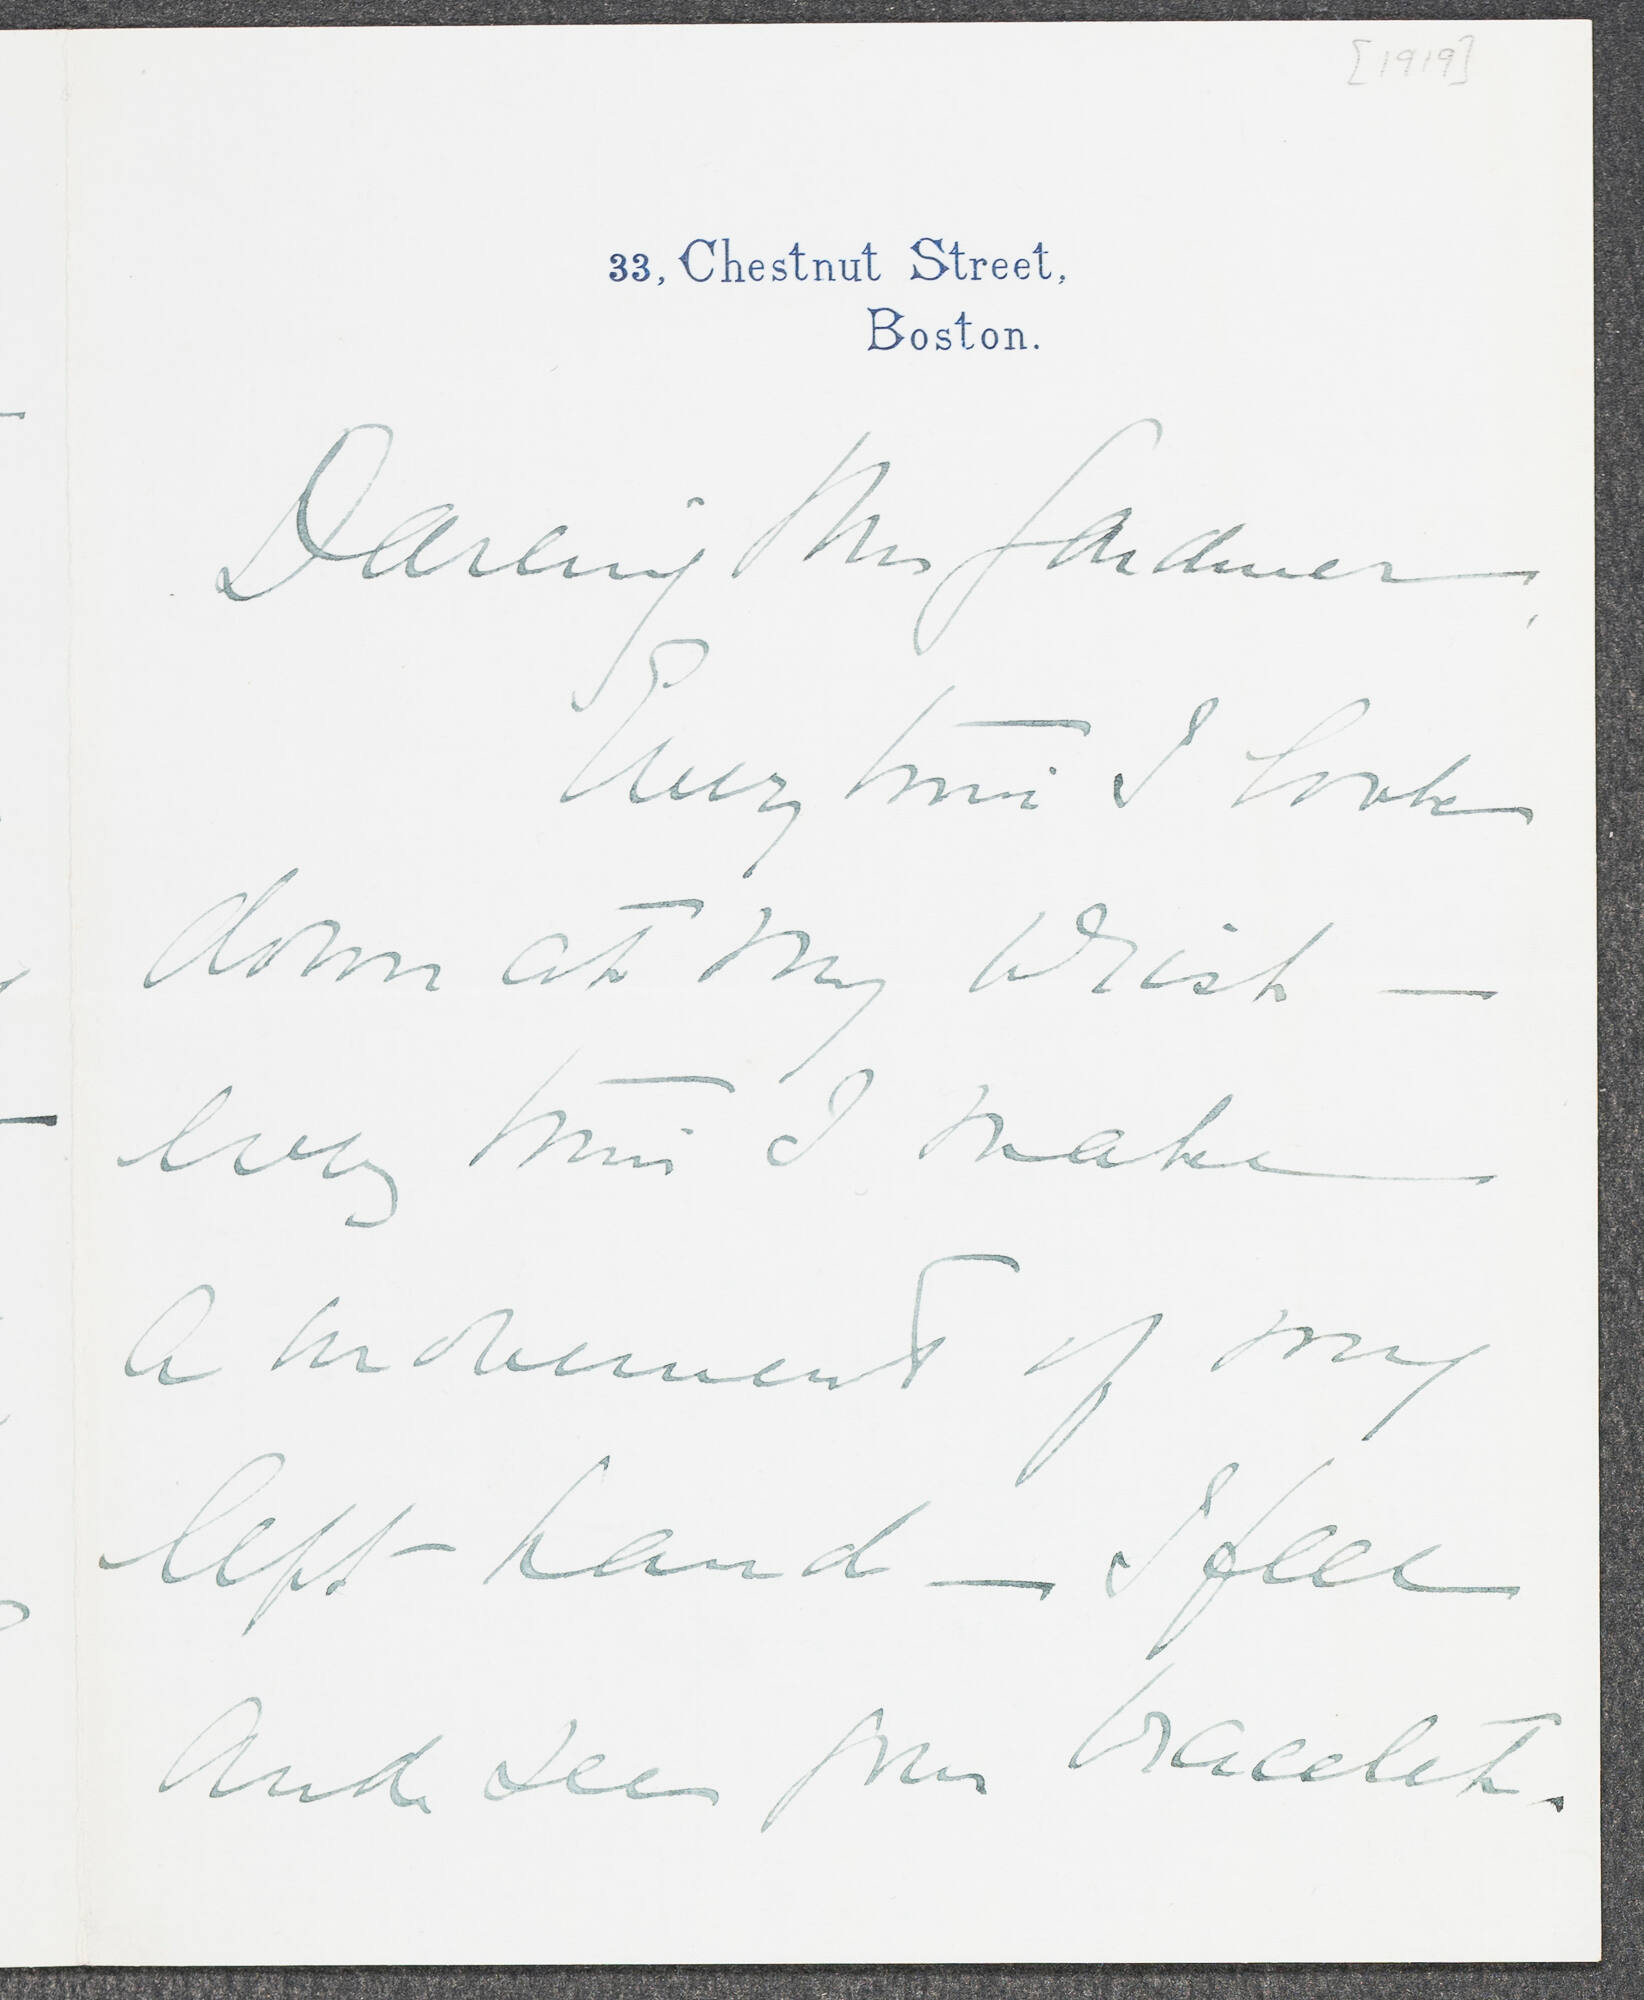 [1919]
33, Chestnut Street,
Boston.
Darling Mrs Gardner,
Every time I look
down at my wrist —
every time I make
a movement of my
left hand — I feel
and see your bracelet.